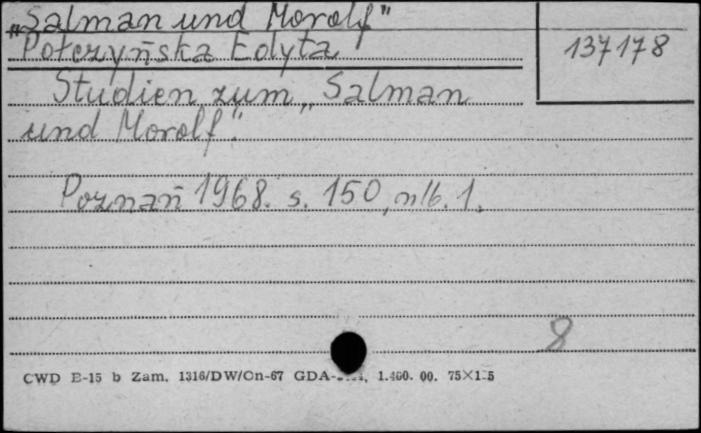 „Salman und Morolf"
Połczyńska Edyta
137178
Studien zum „Salman
und Morolf".
Poznań 1968. s. 150, nlb. 1.
8
CWD E-15 b Zam. 1316/DW/On-67 GDA- 1.400. 00.